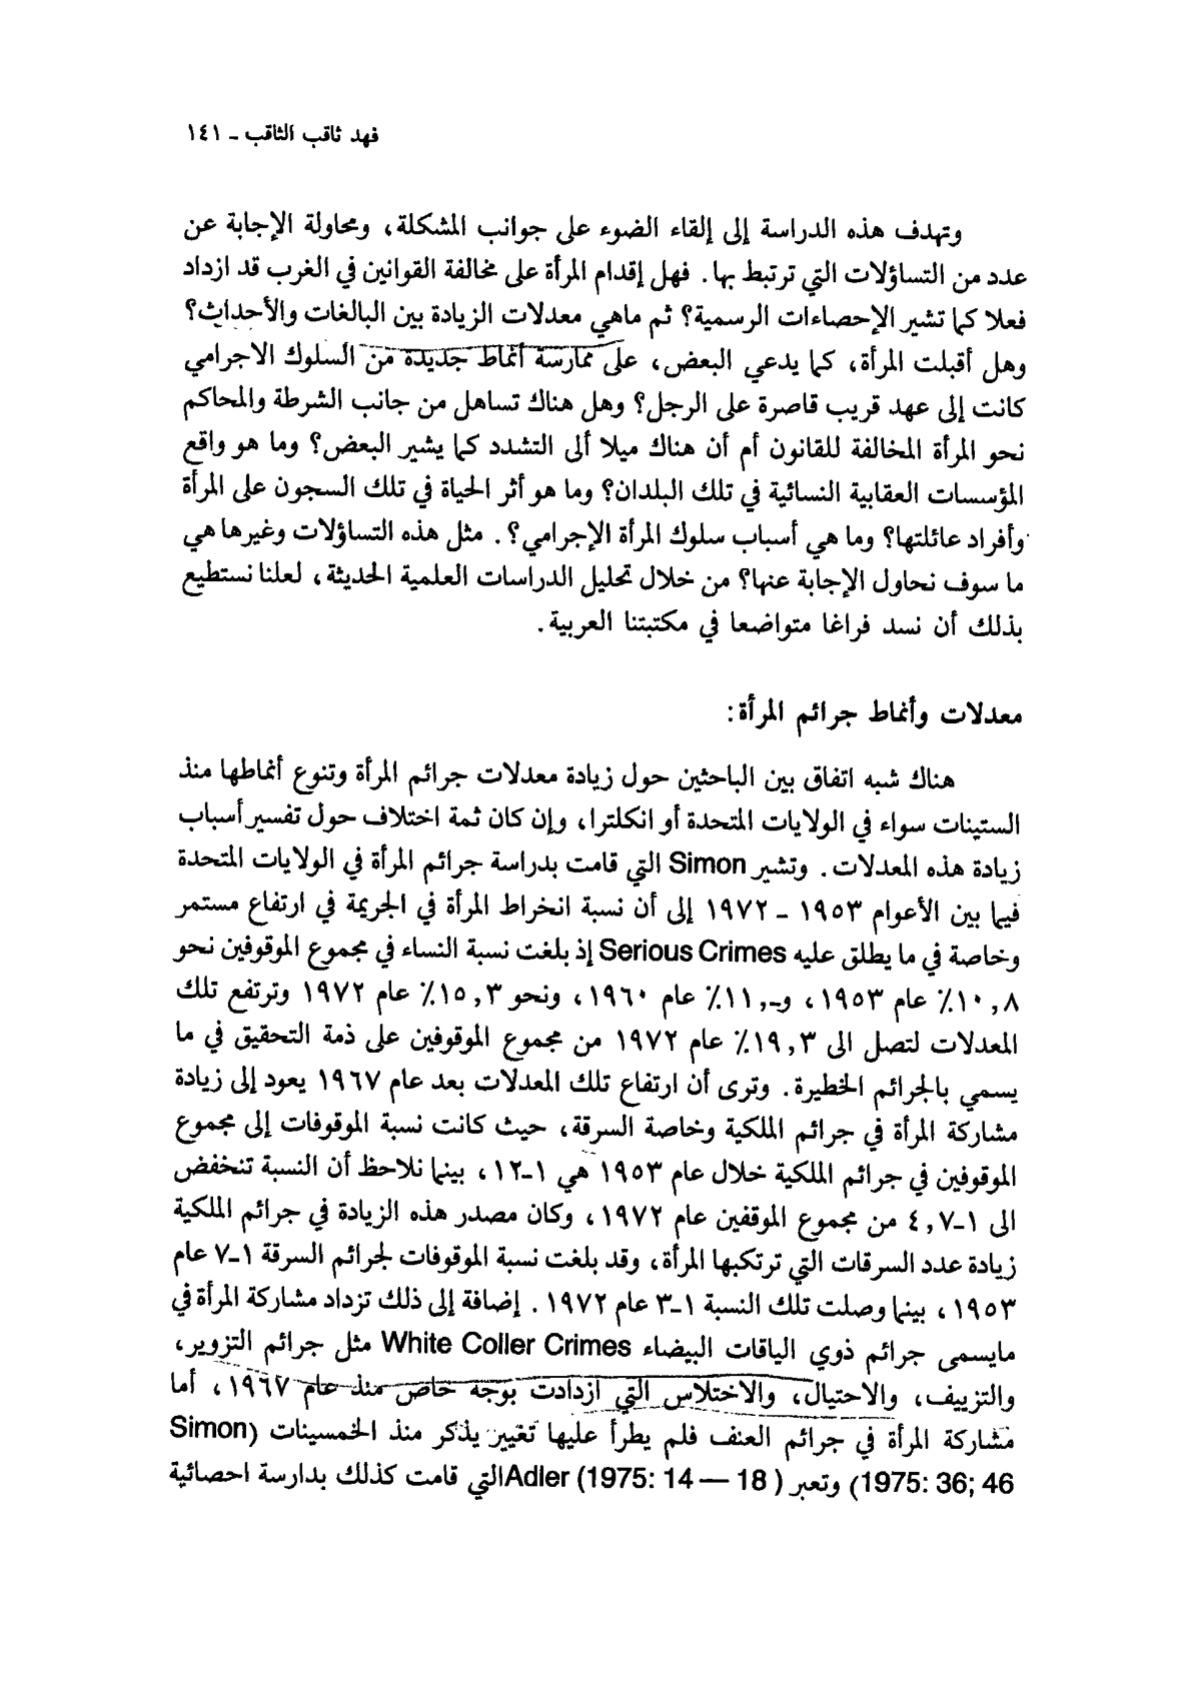 فهد ثاقب الثاقب ـ ١٤١
وتهدف هذه الدراسة إلى إلقاء الضوء على جوانب المشكلة، ومحاولة الإجابة عن
عدد من التساؤلات التي ترتبط بها. فهل إقدام المرأة على مخالفة القوانين في الغرب قد ازداد
فعلا كما تشير الإحصاءات الرسمية؟ ثم ماهي معدلات الزيادة بين البالغات والأحداث؟
وهل أقبلت المرأة، كما يدعي البعض، على ممارسة أنماط جديدة من السلوك الاجرامي
كانت إلى عهد قريب قاصرة على الرجل؟ وهل هناك تساهل من جانب الشرطة والمحاكم
نحو المرأة المخالفة للقانون أم أن هناك ميلا ألى التشدد كما يشير البعض؟ وما هو واقع
المؤسسات العقابية النسائية في تلك البلدان؟ وما هو أثر الحياة في تلك السجون على المرأة
وأفراد عائلتها؟ وما هي أسباب سلوك المرأة الإجرامي؟. مثل هذه التساؤلات وغيرها هي
ما سوف نحاول الإجابة عنها؟ من خلال تحليل الدراسات العلمية الحديثة، لعلنا نستطيع
بذلك أن نسد فراغا متواضعا في مكتبتنا العربية.
معدلات وأنماط جرائم المرأة:
هناك شبه اتفاق بين الباحثين حول زيادة معدلات جرائم المرأة وتنوع أنماطها منذ
الستينات سواء في الولايات المتحدة أو انكلترا، وإن كان ثمة اختلاف حول تفسير أسباب
زيادة هذه المعدلات. وتشير Simon التي قامت بدراسة جرائم المرأة في الولايات المتحدة
فيما بين الأعوام ١٩٥٣ ـ ١٩٧٢ إلى أن نسبة انخراط المرأة في الجريمة في ارتفاع مستمر
وخاصة في ما يطلق عليه Serious Crimes إذ بلغت نسبة النساء في مجموع الموقوفين نحو
١٠,٨٪ عام ١٩٥٣، و-,١١٪ عام ١٩٦٠، ونحو ١٥,٣٪ عام ١٩٧٢ وترتفع تلك
المعدلات لتصل الى ١٩,٣٪ عام ١٩٧٢ من مجموع الموقوفين على ذمة التحقيق في ما
يسمي بالجرائم الخطيرة. وترى أن ارتفاع تلك المعدلات بعد عام ١٩٦٧ يعود إلى زيادة
مشاركة المرأة في جرائم الملكية وخاصة السرقة، حيث كانت نسبة الموقوفات إلى مجموع
الموقوفين في جرائم الملكية خلال عام ١٩٥٣ هي ١-١٢، بينما نلاحظ أن النسبة تنخفض
الى ١-٤,٧ من مجموع الموقفين عام ١٩٧٢، وكان مصدر هذه الزيادة في جرائم الملكية
زيادة عدد السرقات التي ترتكبها المرأة، وقد بلغت نسبة الموقوفات لجرائم السرقة ١-٧ عام
١٩٥٣، بينما وصلت تلك النسبة ١-٣ عام ١٩٧٢. إضافة إلى ذلك تزداد مشاركة المرأة في
مايسمى جرائم ذوي الياقات البيضاء White Coller Crimes مثل جرائم التزوير،
والتزييف، والاحتيال، والاختلاس التي ازدادت بوجه خاص منذ عام ١٩٦٧، أما
مشاركة المرأة في جرائم العنف فلم يطرأ عليها تغيير يذكر منذ الخمسينات (Simon
1975: 36; 46) وتعبر Adler (1975: 14 — 18 ) التي قامت كذلك بدارسة احصائية